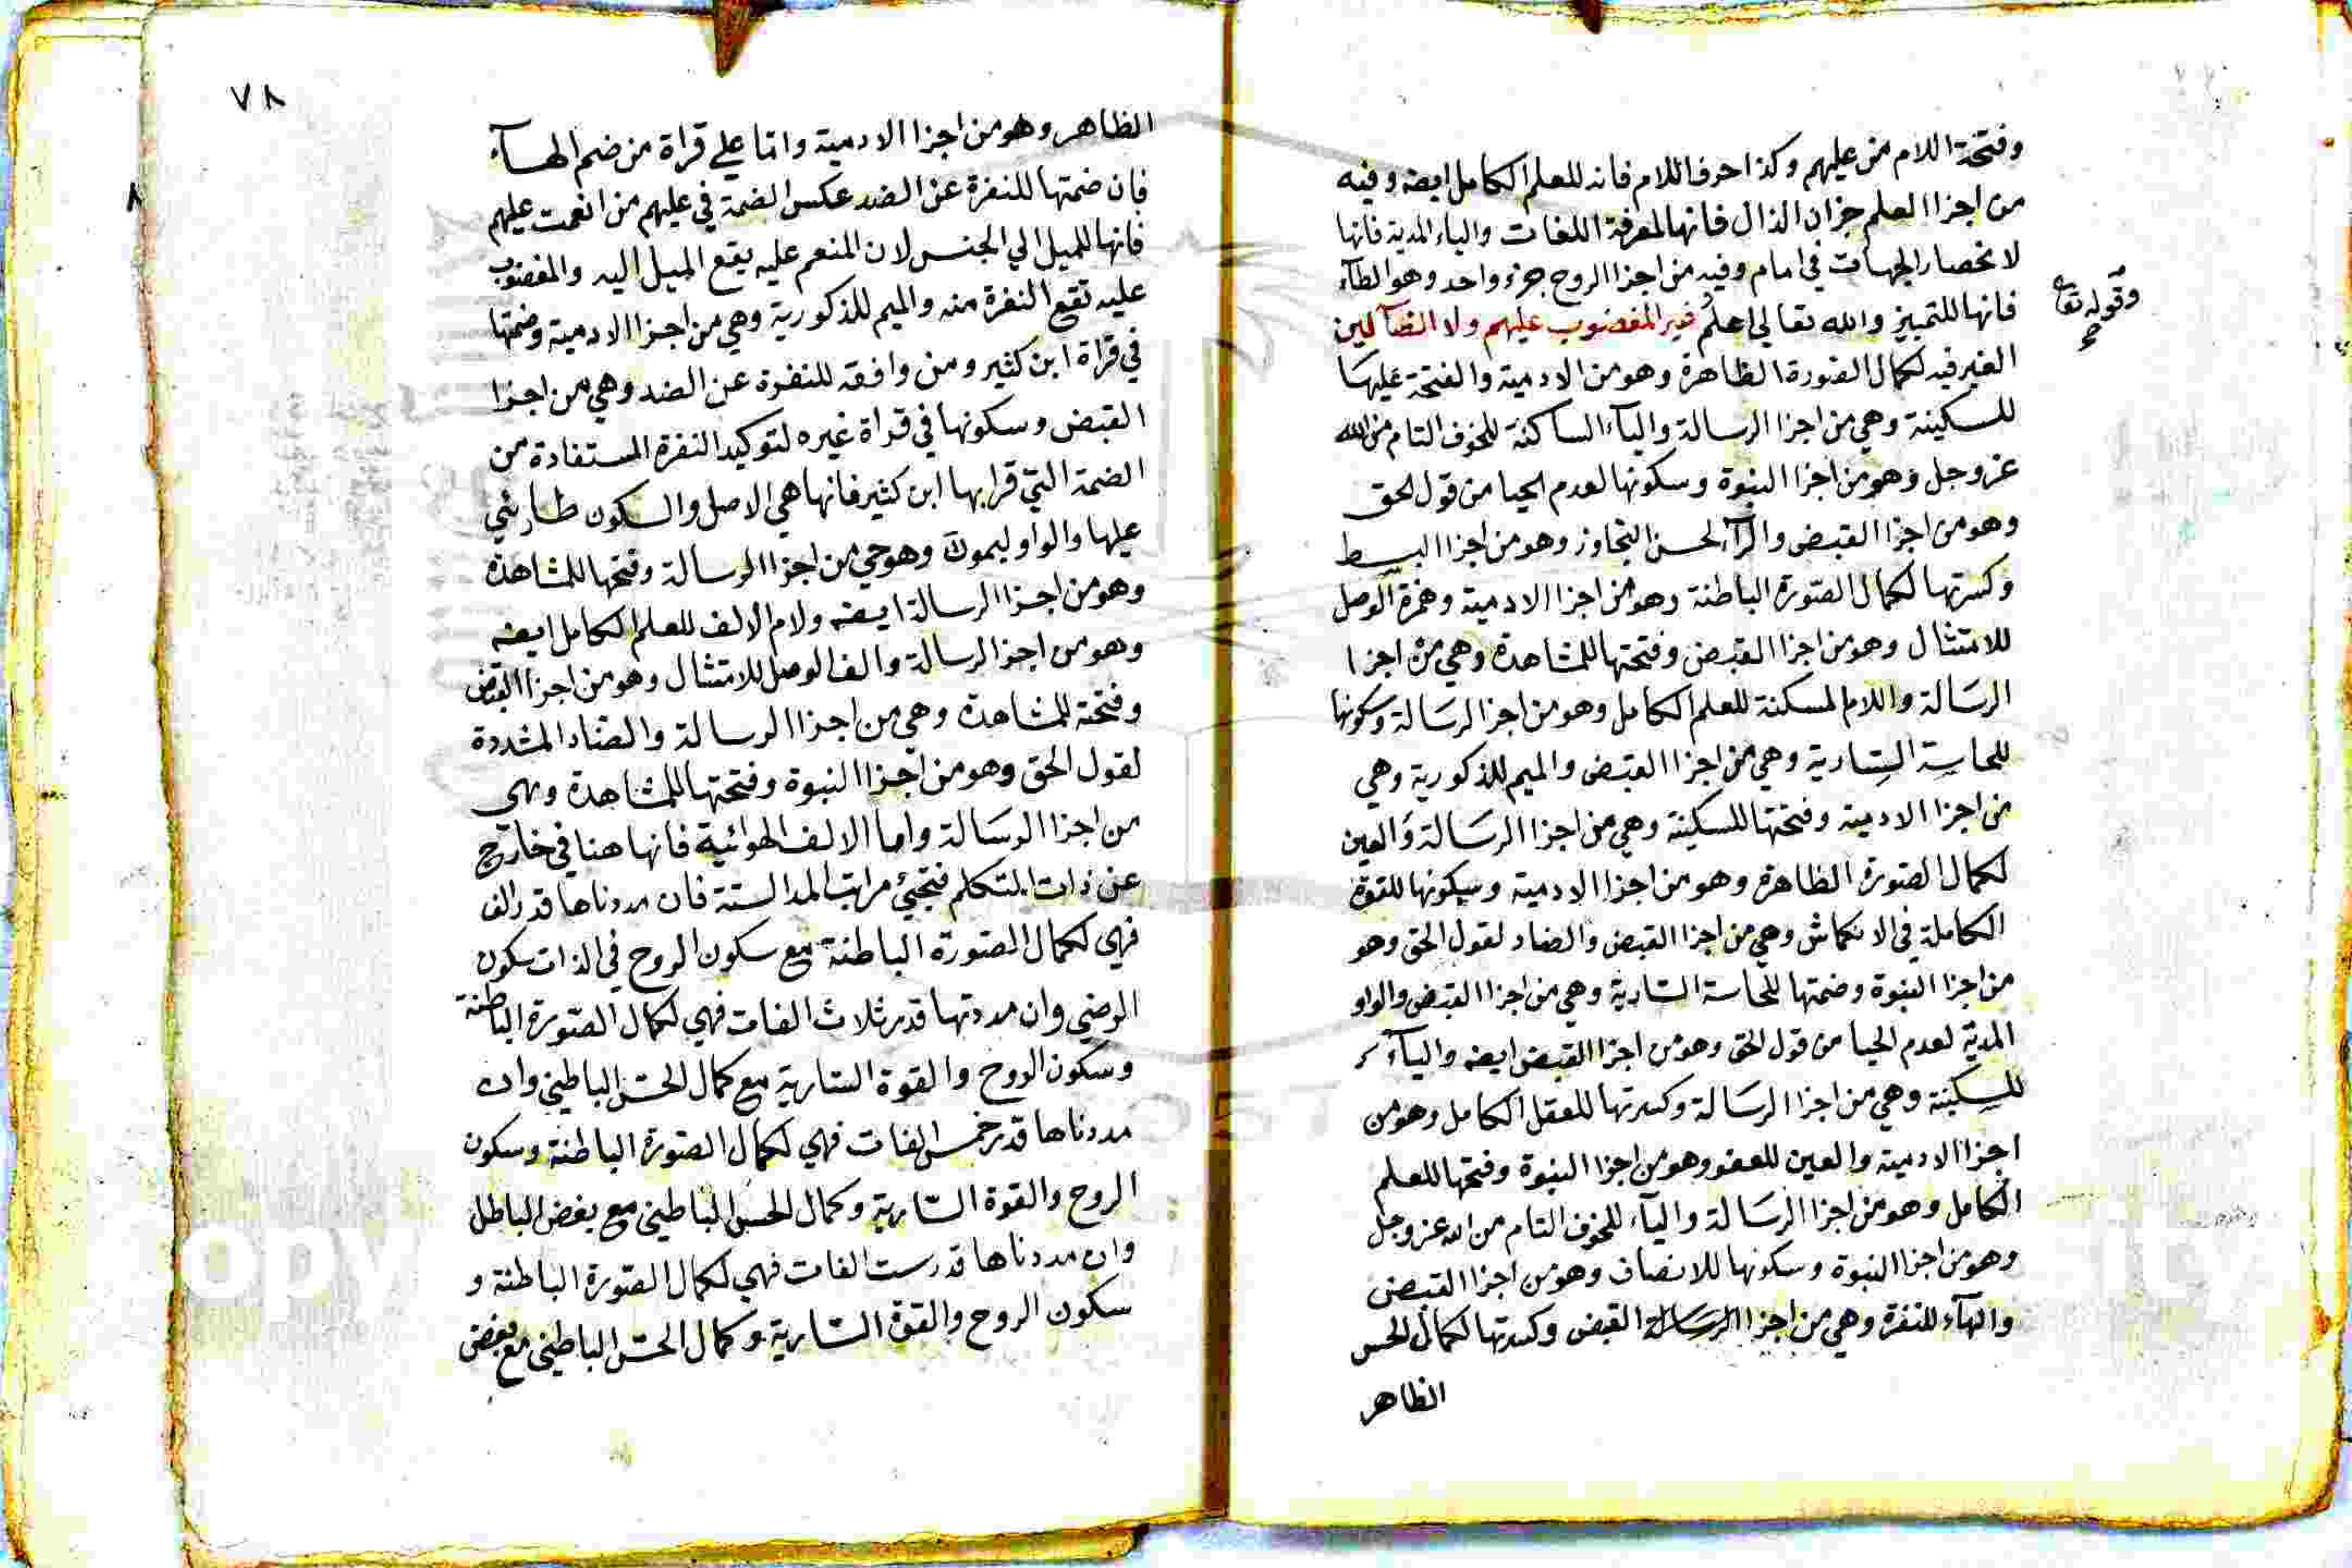 وفتحة اللام من عليهم وكذا حرف اللام فانه للعلم الكامل ايضه وفيه
من اجزا العلم جزان الذال فانها لمعرفة اللغات والياء المدية فانها
لانحصار الجهات في امام وفيه من اجزا الروح جزء واحد وهو الطآء
فانها للتمييز والله تعالي اعلم غير المغضوب عليهم ولا الضآلين
وقوله تعا
صح
الغير فيه لكمال الصورة الظاهرة وهو من الادمية والفتحة عليها
للسكينة وهي من اجزا الرسالة والياء الساكنة للخوف التام من الله
عز وجل وهو من اجزا النبوة وسكونها لعدم الحيا من قول الحق
وهو من اجزا القبض والرآء لحسن التجاوز وهو من اجزا البسط
وكسرتها لكمال الصورة الباطنة وهو من اجزا الادمية وهمزة الوصل
للامتثال وهو من اجزا القبض وفتحتها للمشاهدة وهي من اجزا
الرسالة واللام المسكنة للعلم الكامل وهو من اجزا الرسالة وسكونها
للحاسة السارية وهي من اجزا القبض والميم للذكورية وهي
من اجزا الادمية وفتحتها للسكينة وهي من اجزا الرسالة والعين
لكمال الصورة الظاهرة وهو من اجزا الادمية وسكونها للقوة
الكاملة في الانكماش وهي من اجزا القبض والضاد لقول الحق وهو
من اجزا النبوة وضمتها للحاسة السارية وهي من اجزا القبض والواو
المدية لعدم الحيا من قول الحق وهو من اجزا القبض ايضه والبآء
للسكينة وهي من اجزا الرسالة وكسرتها للعقل الكامل وهو من
اجزا الادمية والعين للعفو وهو من اجزا النبوة وفتحها للعلم
الكامل وهو من اجزا الرسالة واليآء للخوف التام من الله عز وجل
وهو من اجزا النبوة وسكونها للانصاف وهو من اجزا القبض
والهآء للنفرة وهي من اجزا الرسالة القبض وكسرتها لكمال الحس
الظاهر
٧٨
الظاهر وهو من اجزا الادمية واما علي قراة من ضم الهآء
فان ضمتها للنفرة عن الضد عكس الضمة في عليهم من انعمت عليهم
فانها للميل الي الجنس لان المنعم عليه يقع الميل اليه والمغضوب
عليه تقع النفرة منه والميم للذكورية وهي من اجزا الادمية وضمتها
في قراة ابن كثير ومن وافقه للنفرة عن الضد وهي من اجزا
القبض وسكونها في قراة غيره لتوكيد النفرة المستفادة من
الضمة التي قرا بها ابن كثير فانها هي الاصل والسكون طارئي
عليها والواو ليموت وهو حي من اجزا الرسالة وفتحها للمشاهدة
وهو من اجزا الرسالة ايضه ولام الالف للعلم الكامل ايضه
وهو من اجزا الرسالة والف الوصل للامتثال وهو من اجزا القبض
وفتحته للمشاهدة وهي من اجزا الرسالة والضاد المشددة
لقول الحق وهو من اجزا النبوة وفتحتها للمشاهدة وهي
من اجزا الرسالة واما الالف الهوائية فانها هنا في خارج
عن ذات المتكلم فتجيئ مراتب المد الستة فان مددناها قدر الف
فهي لكمال الصورة الباطنة مع سكون الروح في الذات سكون
الرضي وان مددتها قدر ثلاث الفات فهي لكمال الصورة الباطنة
وسكون الروح والقوة السارية مع كمال الحس الباطني وان
مددناها قدر خمس الفات فهي لكمال الصورة الباطنة وسكون
الروح والقوة السارية وكمال الحس الباطني مع بغض الباطل
وان مددناها قدر ست الفات فهي لكمال الصورة الباطنة و
سكون الروح والقوة السارية وكمال الحس الباطني مع بغض